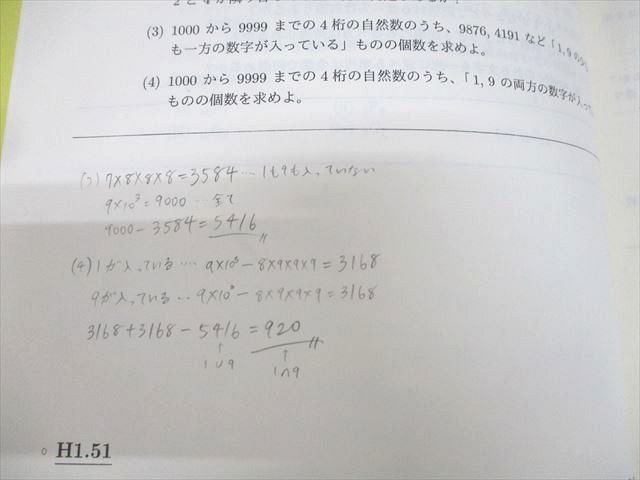 (3) 1000 から 9999 までの 4 桁の自然数のうち、9876, 4191 など「1, 9 の
も一方の数字が入っている」ものの個数を求めよ。
(4) 1000 から 9999 までの 4 桁の自然数のうち、「1, 9 の両方の数字が入って
ものの個数を求めよ。
(3) 7×8×8×8=3584 … 1も9も入っていない
9×10³=9000 … 全て
9000-3584=5416
(4) 1が入っている … 9×10³-8×9×9×9=3168
9が入っている … 9×10³-8×9×9×9=3168
3168+3168-5416=920
↑ ↑
1∪9 1∩9
H1.51